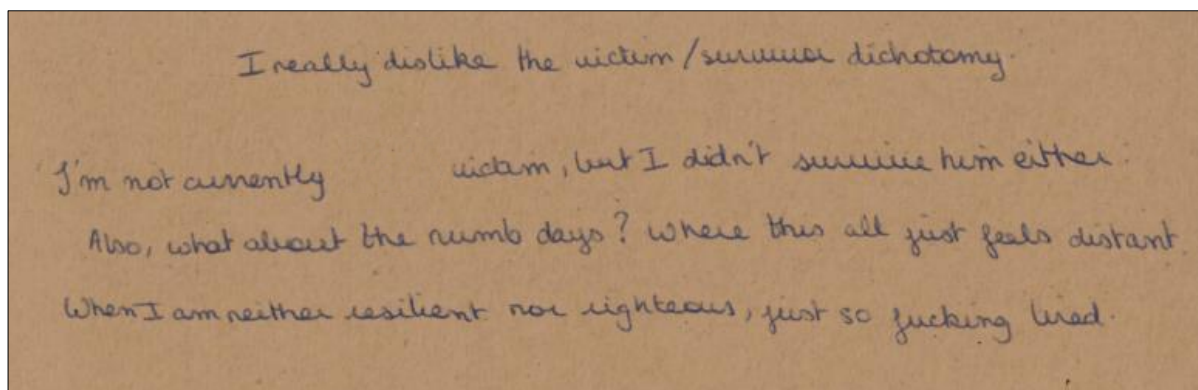 I really dislike the victim/survivor dichotomy.
I'm not currently victim, but I didn't survive him either.
Also, what about the numb days? Where this all just feels distant
When I am neither resilient nor righteous, just so fucking tired.